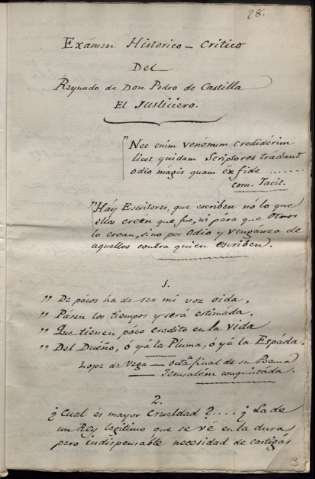 28.
Exámen Historico - Critico
Del
Reynado de Don Pedro de Castilla
El Justiciero.
"Nec enim venenum crediderim
licet quidam Scriptores tradant
odio magis quam ex fide ......
Corn. Tacit.
"Háy Escritores, que escriben no lo que
ellos creen que fué, ni pára que otros
lo crean, sino por odio y venganza de
aquellos contra quien escriben.
1.
" De pócos ha de ser mi voz oida,
" Pásen los tiempos y será estimada,
" Que tienen póco credito en la vida
" Del Dueño, ó yá la Pluma, ó yá la Espáda.
Lopez de Vega — Octa. final de su Poema
— Jerusalém conquistada.
2.
¿Cual és mayor Crueldad?.... ¿La de
un Rey legitimo que se vé en la dura,
pero indispensable necesidad de castigár
3